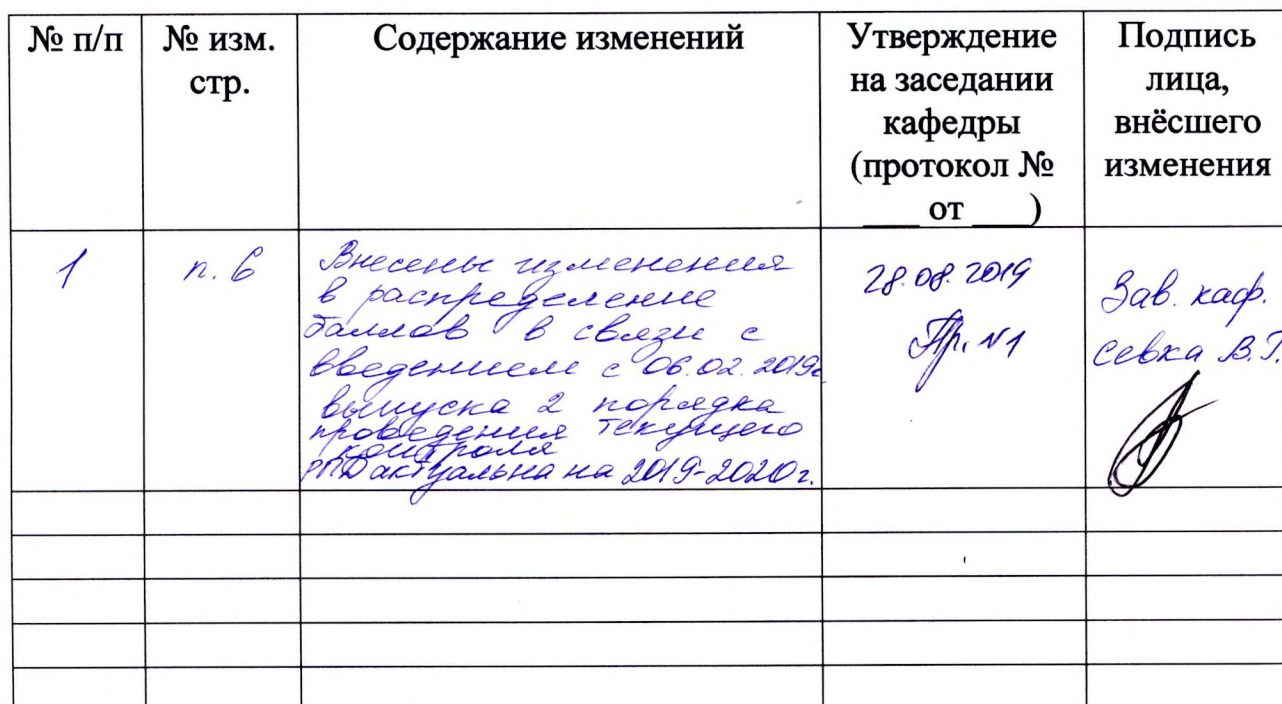 № п/п
№ изм.
стр.
Содержание изменений
Утверждение
на заседании
кафедры
(протокол №
____ от ____)
Подпись
лица,
внёсшего
изменения
1
п. 6
Внесены изменения
в распределение
баллов в связи с
введением с 06.02.2019г
выпуска 2 порядка
проведения текущего
контроля
РПД актуальна на 2019-2020 г.
28.08.2019
Пр. №1
Зав. каф.
Севка В.Г.